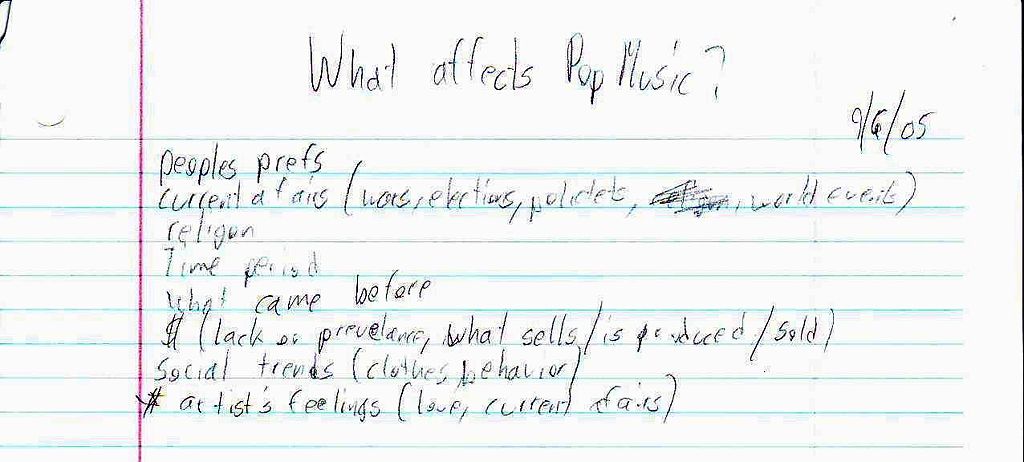 What affects Pop Music?
9/6/05
peoples prefs
current afairs (wars, elections, , world events)
religon
Time period
What came before
$ (lack or prevelance, what sells/is produced/sold)
social trends (clothes, behavior)
* artist's feelings (love, current afairs)